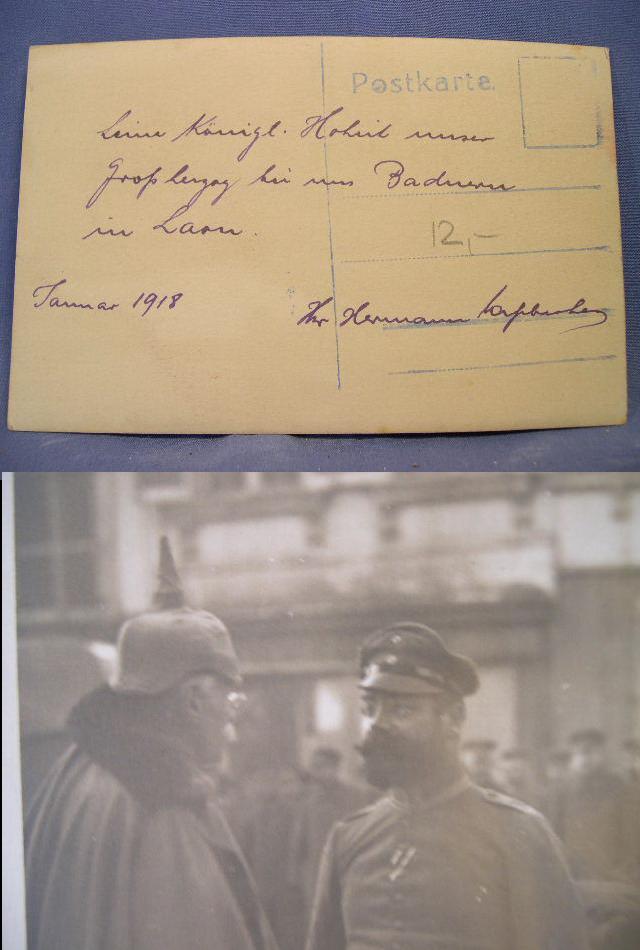 Postkarte.
Seine Königl. Hoheit unser
Großherzog bei uns Badnern
in Laon.
12,-
Januar 1918
Ihr Hermann